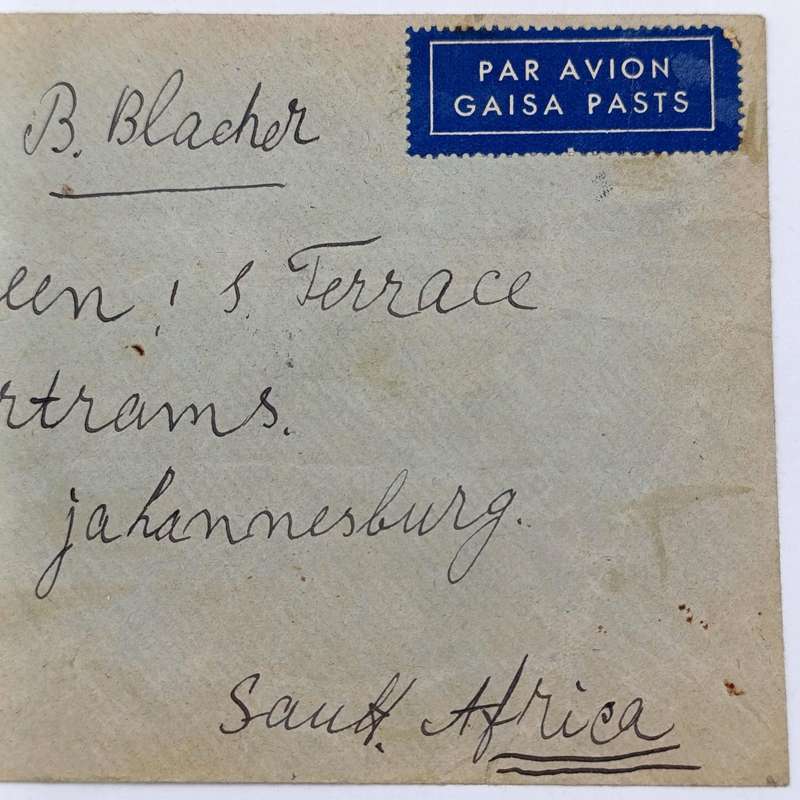 PAR AVION
GAISA PASTS
B. Blacher
een's. Terrace
rtrams.
Jahannesburg.
South. Africa